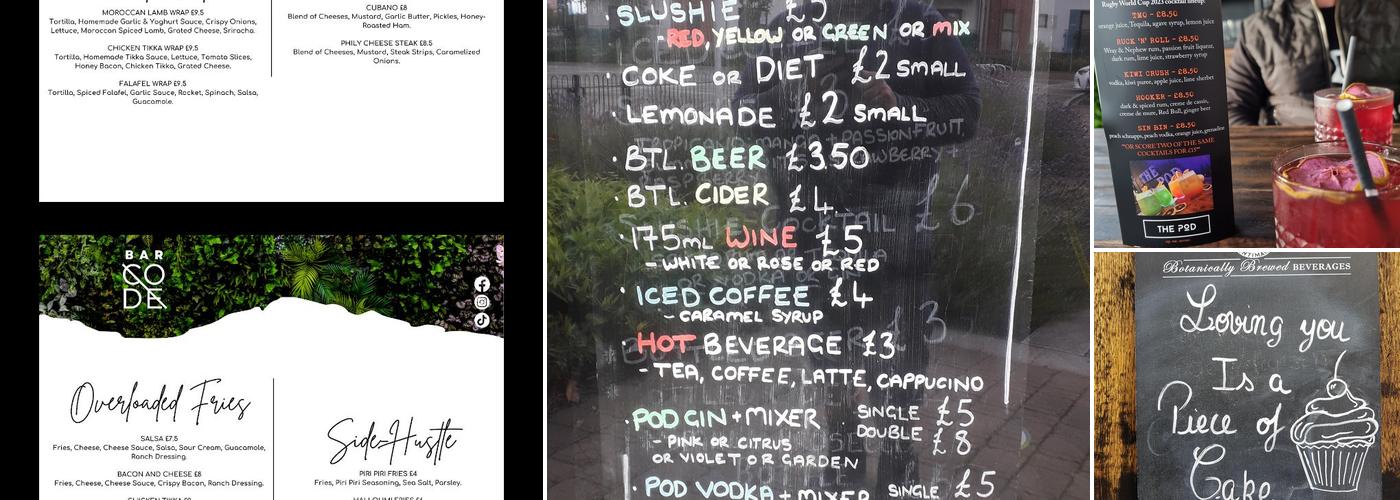 MOROCCAN LAMB WRAP £9.5
Tortilla, Homemade Garlic & Yoghurt Sauce, Crispy Onions,
Lettuce, Moroccan Spiced Lamb, Grated Cheese, Sriracha.
CHICKEN TIKKA WRAP £9.5
Tortilla, Homemade Tikka Sauce, Lettuce, Tomato Slices,
Honey Bacon, Chicken Tikka, Grated Cheese.
FALAFEL WRAP £9.5
Tortilla, Spiced Falafel, Garlic Sauce, Rocket, Spinach, Salsa,
Guacamole.
CUBANO £8
Blend of Cheeses, Mustard, Garlic Butter, Pickles, Honey-
Roasted Ham.
PHILY CHEESE STEAK £8.5
Blend of Cheeses, Mustard, Steak Strips, Caramelized
Onions.
BAR
CO
DE
Overloaded Fries
SALSA £7.5
Fries, Cheese, Cheese Sauce, Salsa, Sour Cream, Guacamole,
Ranch Dressing.
BACON AND CHEESE £8
Fries, Cheese, Cheese Sauce, Crispy Bacon, Ranch Dressing.
Side-Hustle
PIRI PIRI FRIES £4
Fries, Piri Piri Seasoning, Sea Salt, Parsley.
HALLOUMI FRIES £4
· SLUSHIE £5
- RED, YELLOW OR GREEN OR MIX
· COKE OR DIET £2 SMALL
· LEMONADE £2 SMALL
· BTL. BEER £3.50
· BTL. CIDER £4
· 175ML WINE £5
- WHITE OR ROSE OR RED
· ICED COFFEE £4
- CARAMEL SYRUP
· HOT BEVERAGE £3
- TEA, COFFEE, LATTE, CAPPUCINO
· POD GIN + MIXER SINGLE £5
DOUBLE £8
- PINK OR CITRUS
OR VIOLET OR GARDEN
· POD VODKA + MIXER SINGLE £5
PASSIONFRUIT
COCKTAIL £6
£3
Rugby World Cup 2023 cocktail lineup.
TWO - £8.50
orange juice, Tequila, agave syrup, lemon juice
RUCK 'N' ROLL - £8.50
Wray & Nephew rum, passion fruit liqueur,
dark rum, lime juice, strawberry syrup
KIWI CRUSH - £8.50
vodka, kiwi puree, apple juice, lime sherbet
HOOKER - £8.50
dark & spiced rum, creme de cassis,
creme de mure, Red Bull, ginger beer
SIN BIN - £8.50
peach schnapps, peach vodka, orange juice, grenadine
"OR SCORE TWO OF THE SAME
COCKTAILS FOR £15"
THE POD
THE POD
Botanically Brewed BEVERAGES
Loving you
Is a
Piece of
Cake